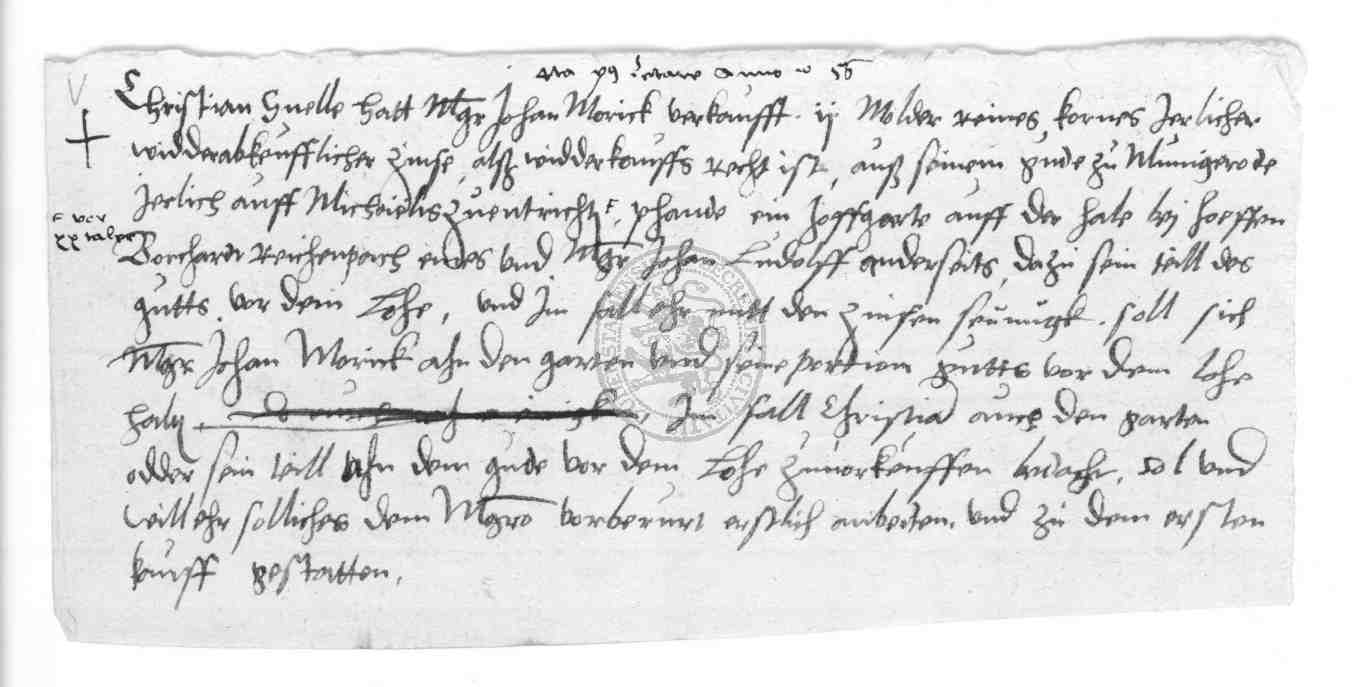 4ta pꝰ Letare Anno ꝛc 56
Christian Snelle hatt Mgr Johan Morick verkaufft. ij Molder reines kornes Jerlicher
widderabkeufflicher Zinse, alß widderkauffs Recht ist, auß seinem gude zu Munigerode
Jerlich auff Michaelis Zuentricht, phande ein hoffgarte auff der hale bij hoeffen
vor
xx taler
Borchardt Reichenpach eines vnd Mgr Johan Ludolff anderseits, dazu sein teill des
gutts vor dem Lohe, vnd Im fall ehr mitt den Zinsen seumigk. soll sich
Mgr Johan Morick ahn den garten vnd seine portion gutts vor dem Lohe
halt, Im fall Christia auch den garten
odder sein teill ahn dem gude vor dem Lohe Zuuorkeuffen bedacht, sol vnd
will ehr solliches dem Mgro vorberurt erstlich anbeiten. vnd zu dem ersten
kauff gestatten.